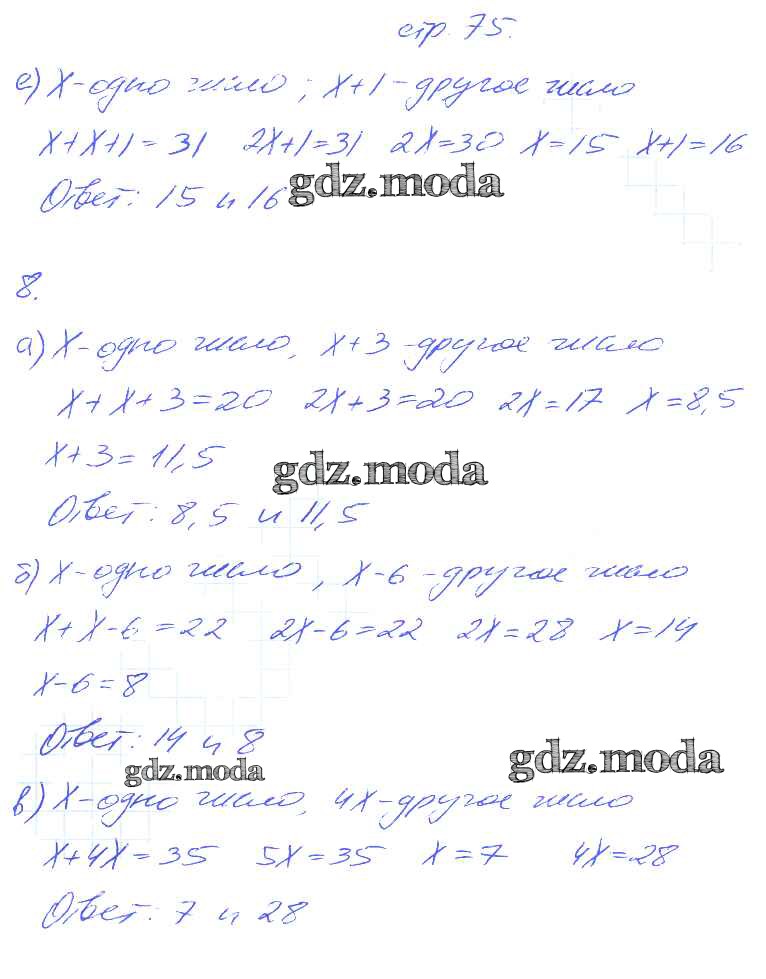 стр. 75.
е) х-одно число ; х+1-другое число
х+х+1=31 2х+1=31 2х=30 х=15 х+1=16
Ответ: 15 и 16
gdz.moda
8.
а) х-одно число, х+3-другое число
х+х+3=20 2х+3=20 2х=17 х=8,5
х+3=11,5
gdz.moda
Ответ: 8,5 и 11,5
б) х-одно число, х-6-другое число
х+х-6=22 2х-6=22 2х=28 х=14
х-6=8
Ответ: 14 и 8
gdz.moda
gdz.moda
в) х-одно число, 4х-другое число
х+4х=35 5х=35 х=7 4х=28
Ответ: 7 и 28